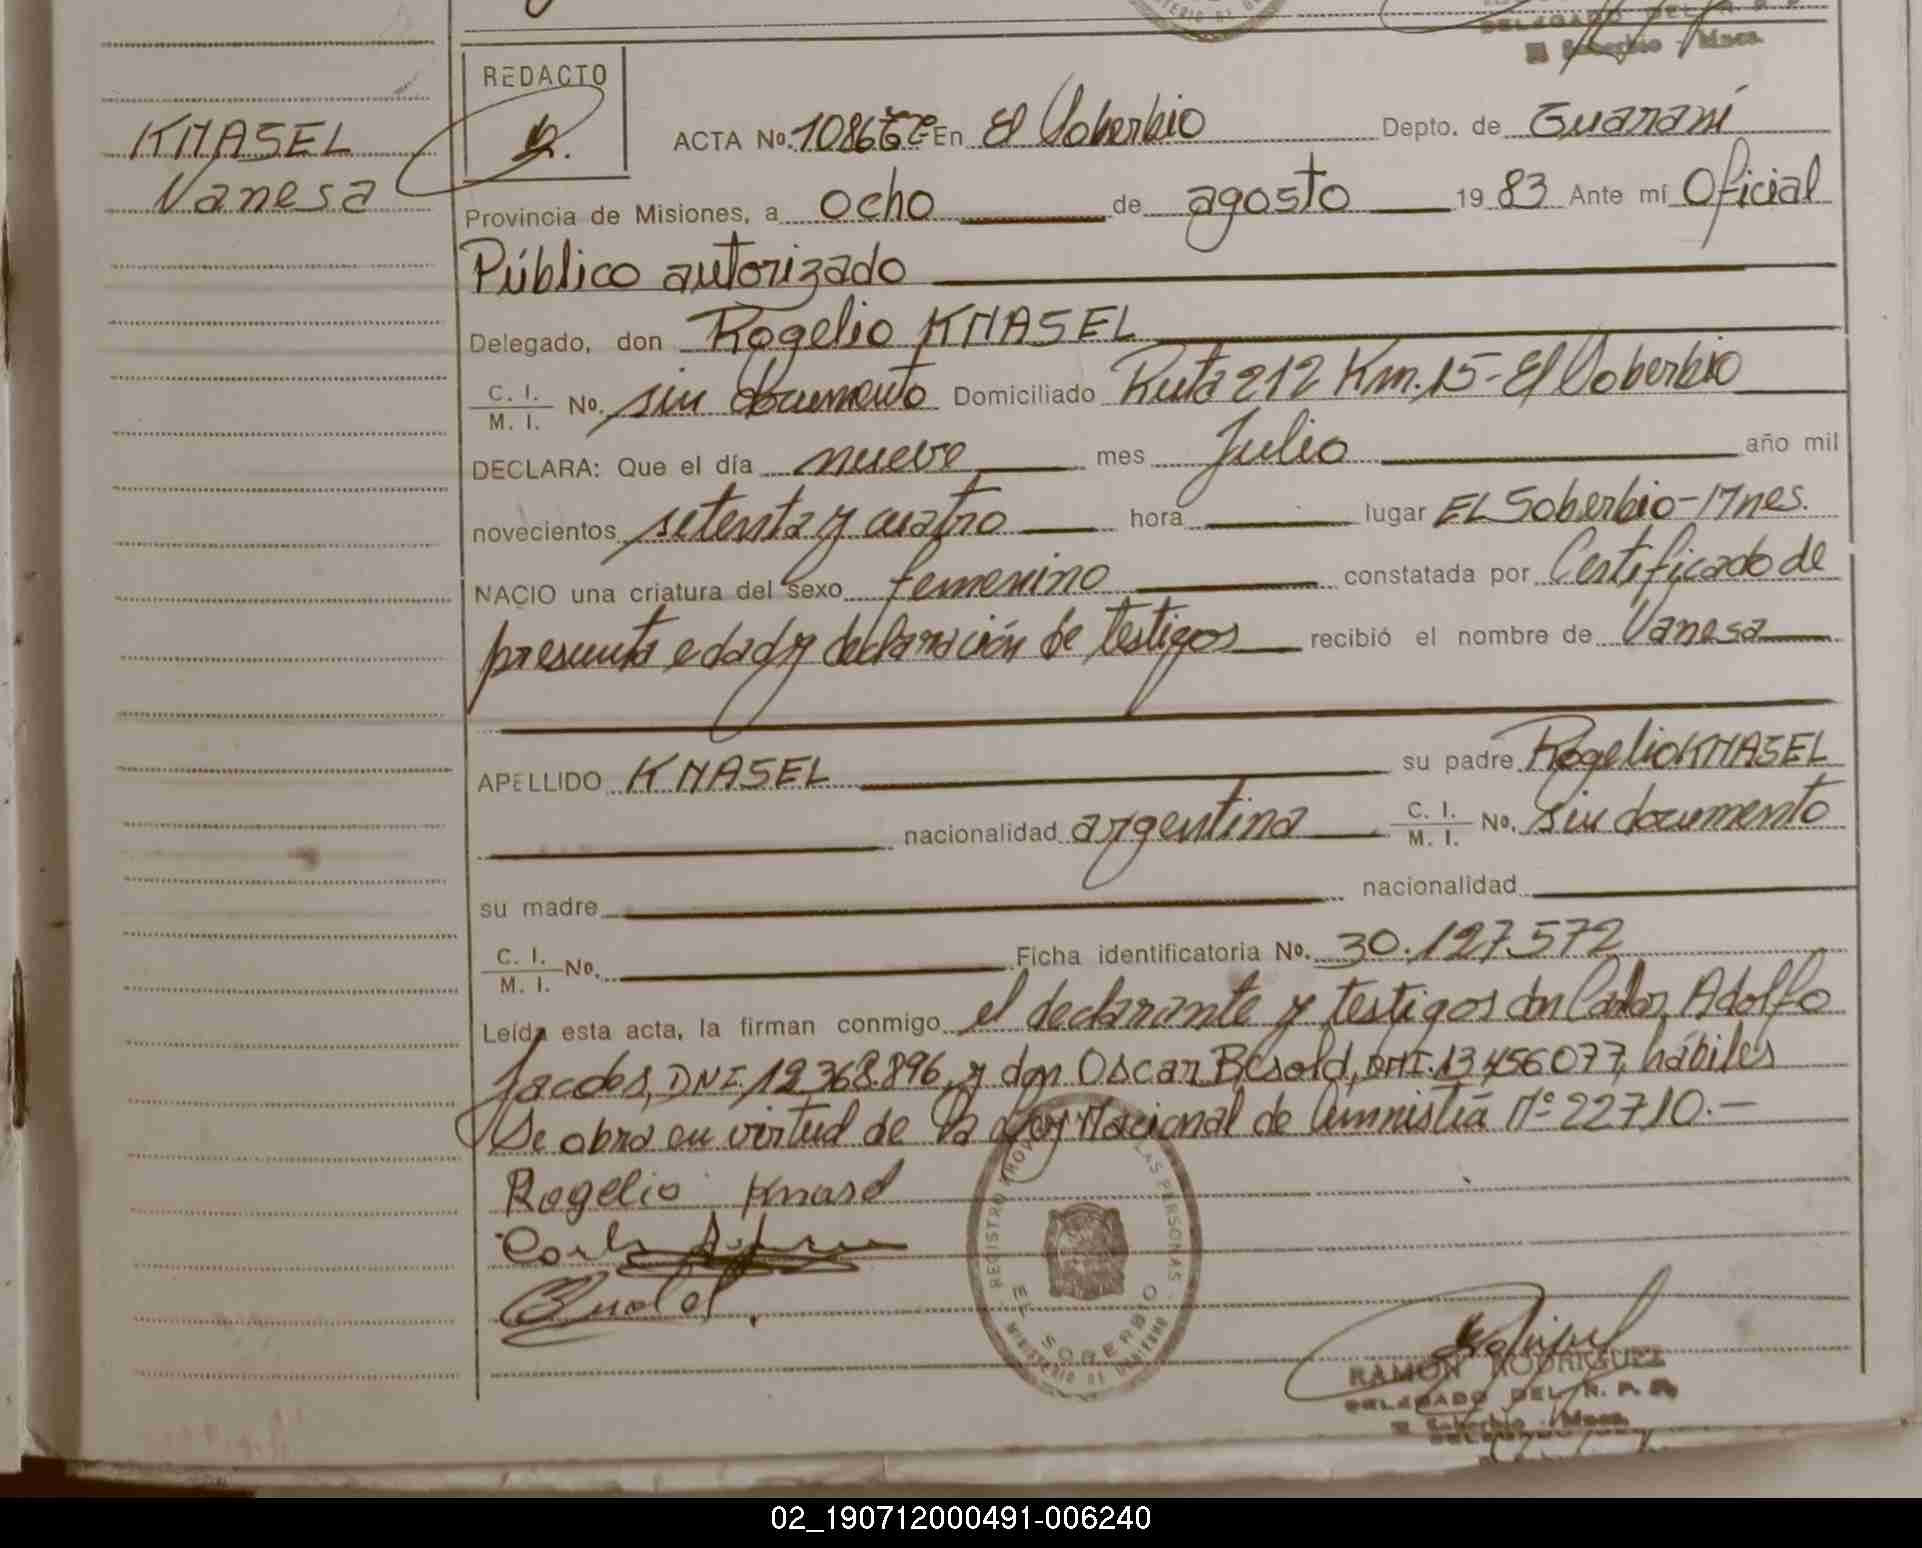 DELEGADO DEL R. P.
El Soberbio - Mnes.
REDACTO
KNASEL
Vanesa
ACTA No. 1086 En El Soberbio Depto. de Guaraní
Provincia de Misiones, a ocho de agosto 1983 Ante mí Oficial
Público autorizado
Delegado, don Rogelio KNASEL
C. I. M. I. No. sin documento Domiciliado Ruta 212 Km. 15 - El Soberbio
DECLARA: Que el día nueve mes Julio año mil
novecientos setenta y cuatro hora lugar EL Soberbio - Mnes.
NACIO una criatura del sexo femenino constatada por Certificado de
presunta edad y declaración de testigos recibió el nombre de Vanesa
APELLIDO KNASEL su padre Rogelio KNASEL
nacionalidad argentina C. I. M. I. No. sin documento
su madre nacionalidad
C. I. M. I. No. Ficha identificatoria No. 30.127.572
Leída esta acta, la firman conmigo el declarante y testigos don Carlos Adolfo
Jacobs, DNI. 12.368.896, y don Oscar Besold, DNI. 13.456.077, hábiles
Se obra en virtud de la Ley Nacional de Amnistía Nº 22710.-
Rogelio Knasel
REGISTRO PROV. DE LAS PERSONAS
EL SOBERBIO
MINISTERIO DE GOBIERNO
RAMON RODRIGUEZ
DELEGADO DEL R. P. P.
El Soberbio - Mnes.
02_190712000491-006240